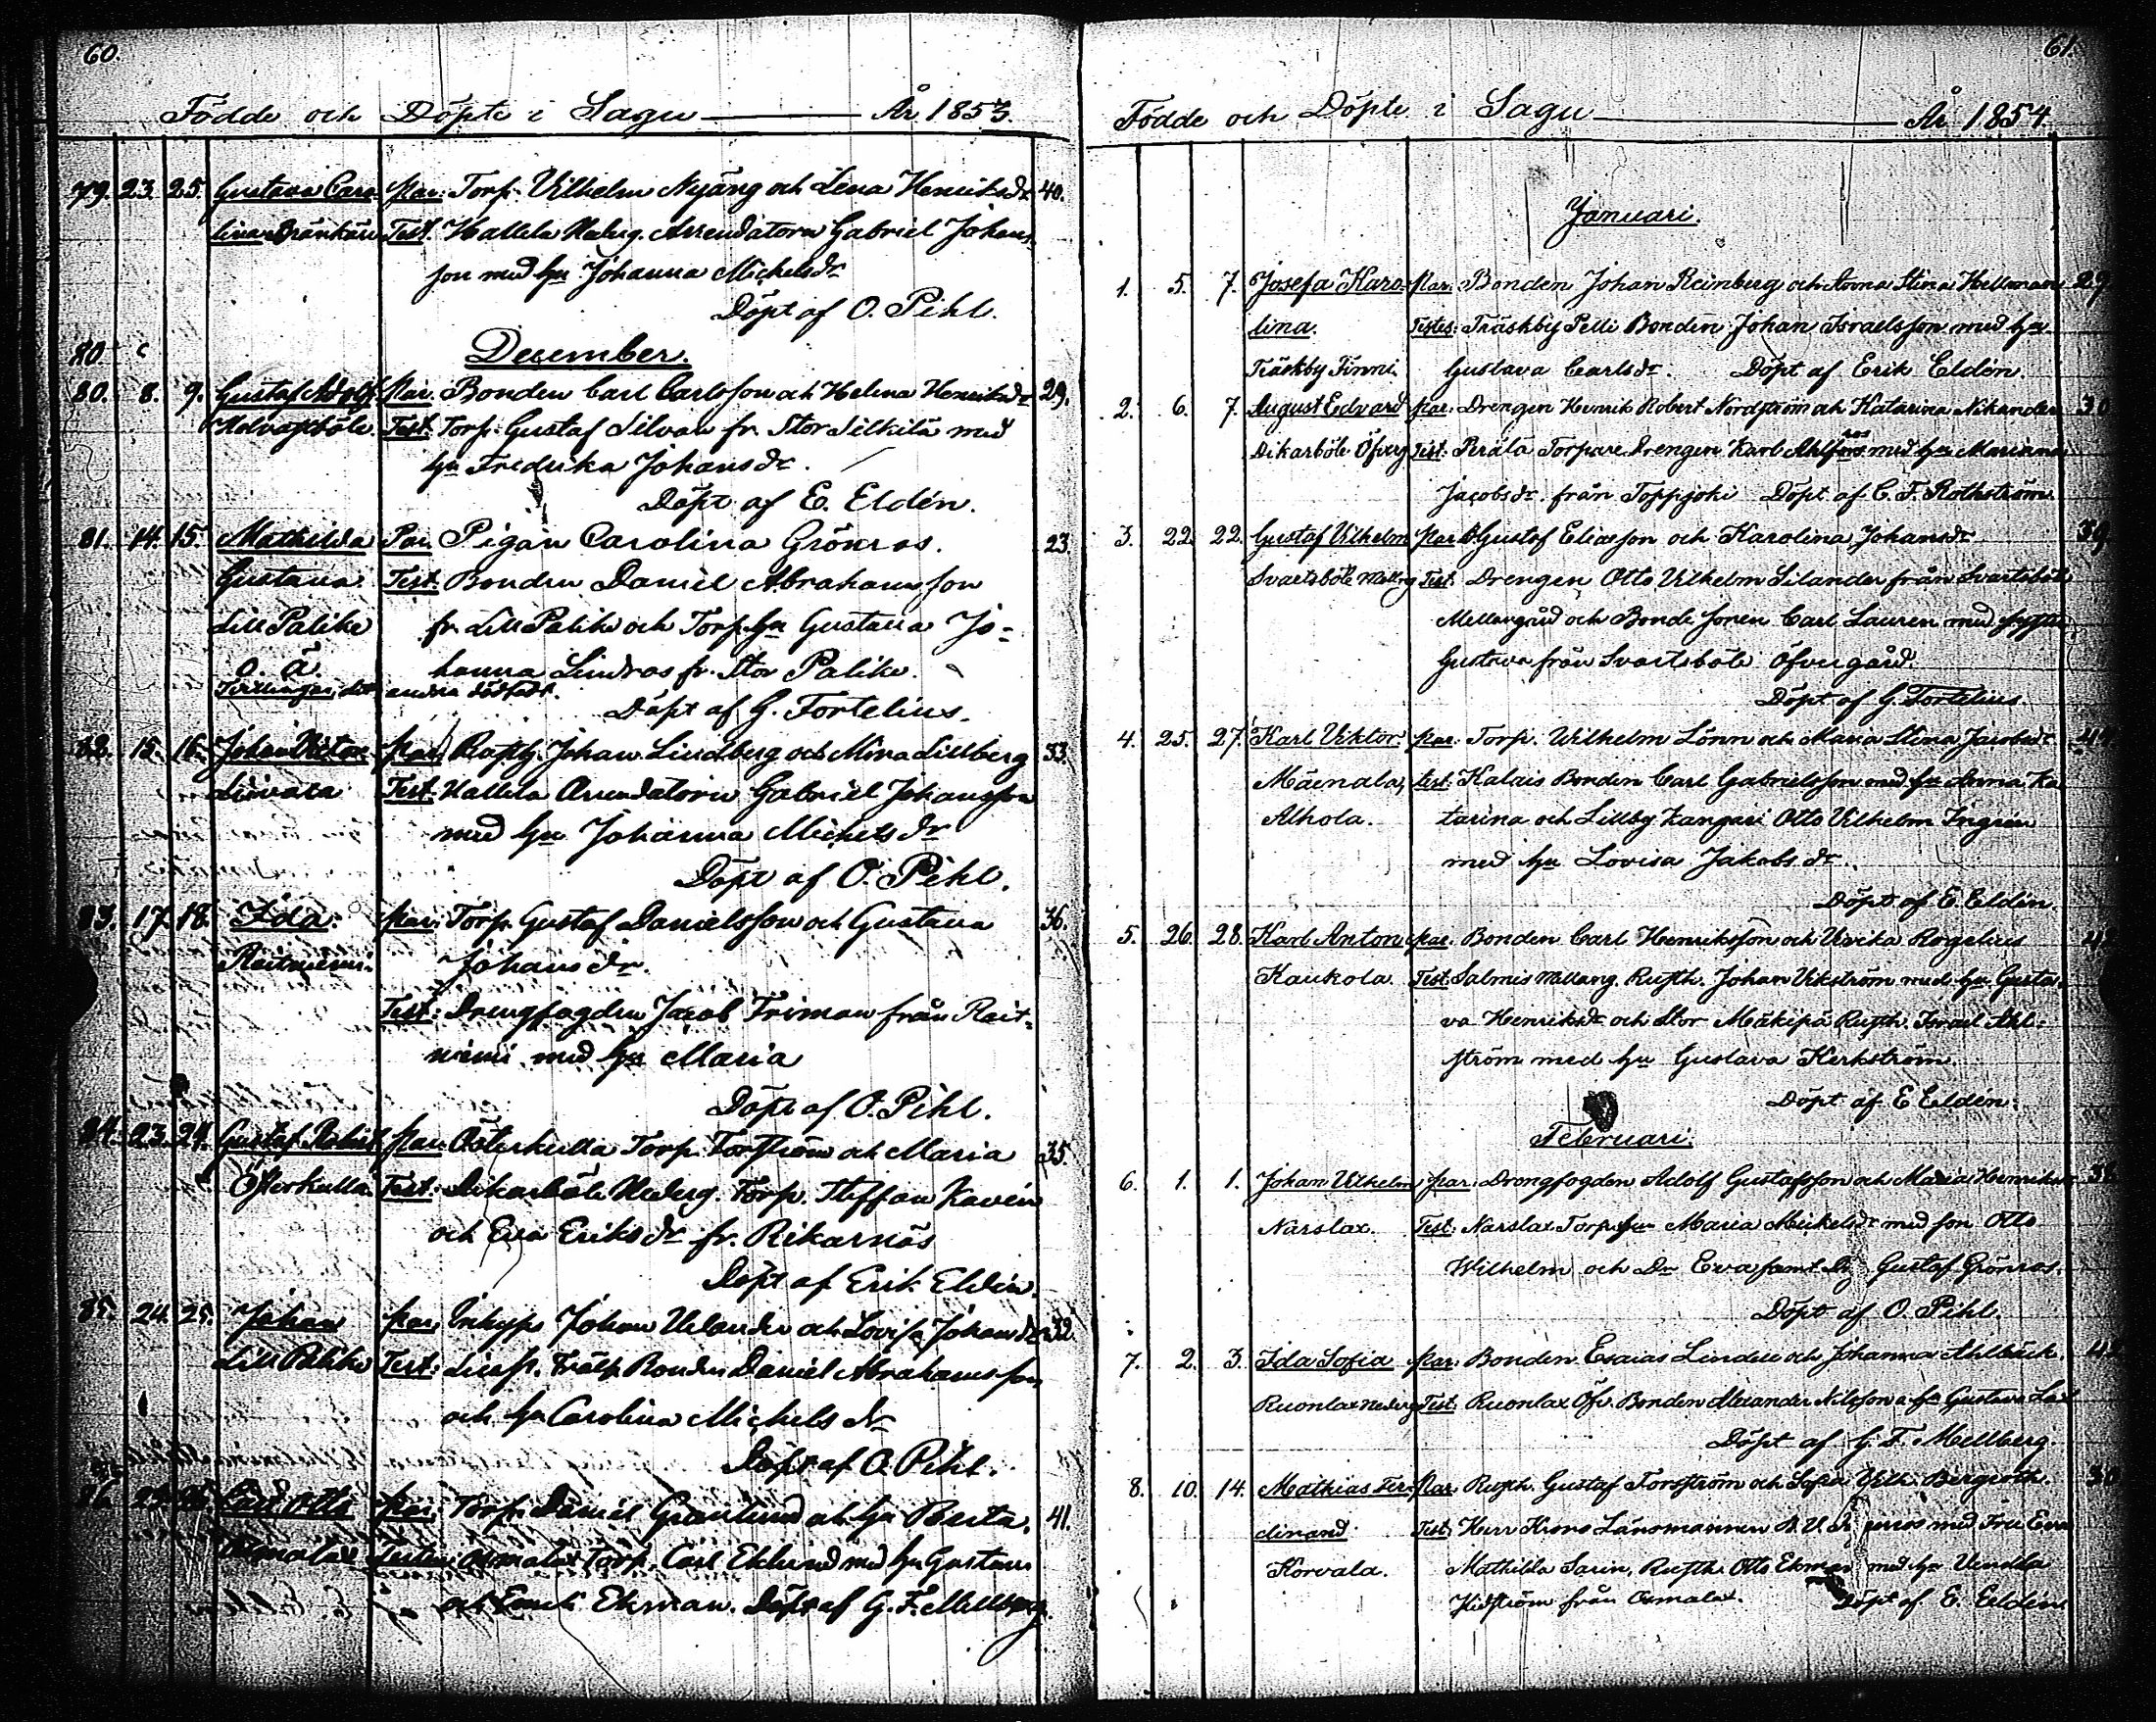 60.
Födde och Döpte i Sagu År 1853.
79. 23. 25. Gustava Caro- Par: Torp. Vilhelm Nyäng och Lena Henriksdr 40.
lina Test. Hallela Nederg. Arrendatorn Gabriel Johans-
son med hu Johanna Michelsdr
Döpt af O. Pihl.
80
December.
80. 8. 9. Gustaf Adolf Par. Bonden Carl Carlsson och Helena Henriksdr 29.
Test. Torp. Gustaf Silvan fr. Stor Silkilä med
hu Fredrika Johansdr.
Döpt af E. Eldén.
81. 14. 15. Mathilda Par. Pigan Carolina Grönros. 23.
Gustava Test: Bonden Daniel Abrahamsson
Lill Palike fr. Lill Palike och Torp.hu Gustava Jo-
o. ä. hanna Lindros fr. Stor Palike.
Tvillingar, det andra dödfödt.
Döpt af G. Fortelius.
82. 15. 16. Johan Victor Par. Rusth. Johan Lindberg och Mina Lillberg 33.
Liivara Test: Hallela Arrendatorn Gabriel Johansson
med hu Johanna Michelsdr
Döpt af O. Pihl.
83. 17. 18. Ida. Par: Torp. Gustaf Danielsson och Gustava 36.
Raitniemi. Johansdr.
Test: Drengfogden Jacob Friman från Rait-
niemi med hu Maria
Döpt af O. Pihl.
84. 23. 24. Gustaf Par. Österkulla Torp. Forsström och Maria 35.
Österkulla Test: Dikarböle Nederg. Torp. Steffan Kavén
och Eva Eriksdr fr. Rikarnäs
Döpt af Erik Eldén.
85. 24. 25. Johan Par. Inhyses Johan Ulander och Lovisa Johansdr 32.
Lill Palike Test: Bonden Daniel Abrahamsson
och hu Carolina Michelsdr
Döpt af O. Pihl.
86. Carl Otto Par. Torp. Daniel Granlund och hu Berta. 41.
Osmalax Testes: Osmalax Torp. Carl Eklund med hu Gustava
och Ekman. Döpt af G. F. Mellberg.
61.
Födde och Döpte i Sagu År 1854.
Januari.
1. 5. 7. Josefa Karo- Par: Bonden Johan Reinberg och Anna Stina Hellman 29
lina. Testes: Träskby Pelli Bonden Johan Israelsson med hu
Träskby Finni. Gustava Carlsdr. Döpt af Erik Eldén.
2. 6. 7. August Edvard Par. Drengen Henrik Robert Nordström och Katarina Nikander 30
Dikarböle Öfverg Test: Perälä Torpare Drengen Karl Ahlfors med hu Marianna
Jacobsdr. från Toppjoki Döpt af C. F. Rothström
3. 22. 22. Gustaf Vilhelm Par. Gustaf Eliasson och Karolina Johansdr 39
Svartsböle Mellng Test: Drengen Otto Vilhelm Silander från Svartsböle
Mellangård och Bonde sonen Carl Lauren med syster
Gustava från Svartsböle Öfvergård.
Döpt af G. Fortelius.
4. 25. 27. Karl Viktor Par. Torp. Wilhelm Lönn och Maria Stina Jacobsdr
Mäenala, Test: Kalais Bonden Carl Gabrielsson med hu Anna Ka-
Alhola. tarina och Lillby Kangari Otto Vilhelm Ingren
med hu Lovisa Jakobsdr.
Döpt af E. Eldén.
5. 26. 28. Karl Anton Par. Bonden Carl Henriksson och Ulrika Rogelius
Kaukola. Test: Salmis Mellang. Rusth. Johan Vikström med hu Gusta-
va Henriksdr och Stor Mäkipä Rusth. Israel Ahl-
ström med hu Gustava Kerkström.
Döpt af E Eldén.
Februari.
6. 1. 1. Johan Vilhelm Par. Drengfogden Adolf Gustafsson och Maria Henriksdr
Narslax. Test: Narslax Torp.hu Maria Mickelsdr med son Otto
Wilhelm och Dr Eva samt Dr. Gustaf Grönros.
Döpt af O. Pihl.
7. 2. 3. Ida Sofia Par. Bonden Esaias Lindell och Johanna Ahlbäck.
Ruonlax Nederg Test: Ruonlax Öfv. Bonden Alexander Nilsson o. hu Gustava
Döpt af G. F. Mellberg.
8. 10. 14. Mathias Fer- Par. Rusth. Gustaf Forsström och Sofia Vilh. Bergroth.
dinand Test: Herr Krono Länsmannen med Fru Eva
Korvala. Mathilda Sarin, Rusth. Otto Ekman med hu Vendla
Hidström från Osmalax. Döpt af E. Eldén